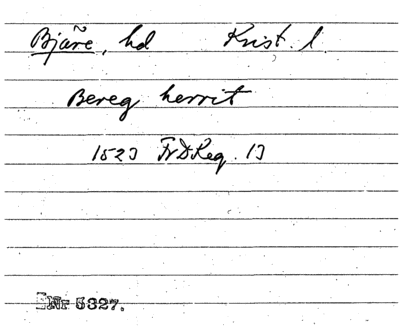 Bjäre, hd Krist. l.
Bereg herrit
1523 FrDReg. 13
Nr 5327.